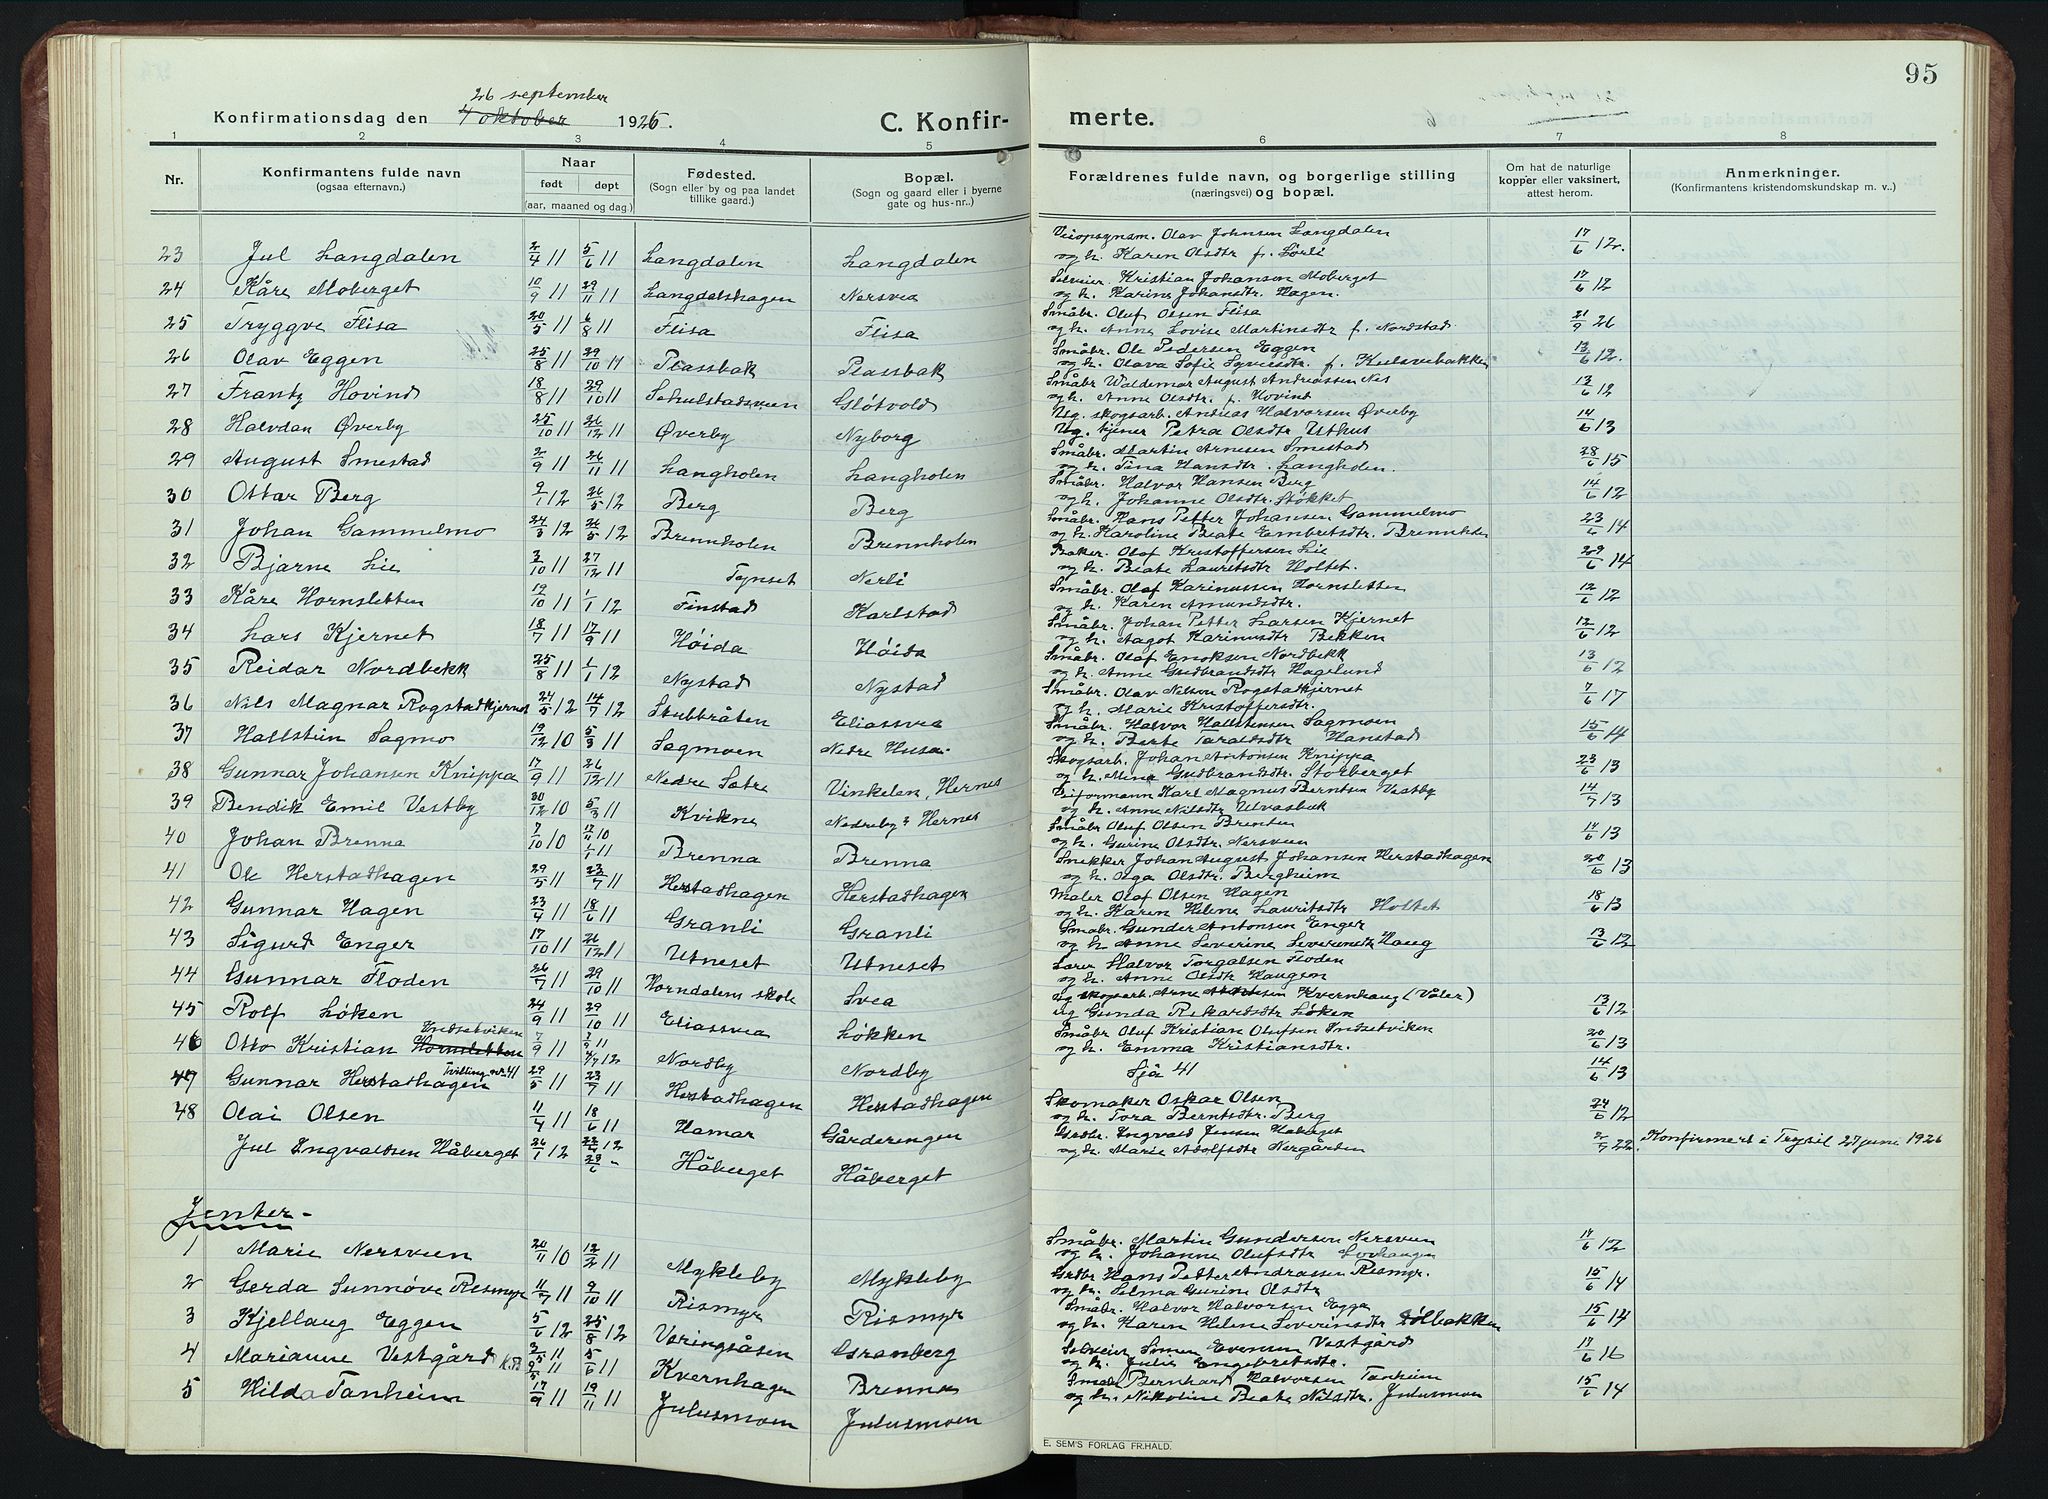 95
26 september
Konfirmationsdag den 4 oktober 1926.
C. Konfir- merte.
1 2 3 4 5 6 7 8
Nr.
Konfirmantens fulde navn
(ogsaa efternavn.)
Naar
født døpt
(aar, maaned og dag.)
Fødested.
(Sogn eller by og paa landet
tillike gaard.)
Bopæl.
(Sogn og gaard eller i byerne
gate og hus-nr..)
Forældrenes fulde navn, og borgerlige stilling
(næringsvei) og bopæl.
Om hat de naturlige
kopper eller vaksinert,
attest herom.
Anmerkninger.
(Konfirmantens kristendomskundskap m. v..)
23 Jul Langdalen 2/4 11 5/6 11 Langdalen Langdalen Olav Johnsen Langdalen 17/6 12.
og h. Karen Olsdtr f. Lörli
24 Kåre Moberget 10/9 11 29/11 11 Langdalshagen Nersvea Selveier. Kristian Johansen Moberget 17/6 12
og h. Karine Johansdtr. Hagen.
25 Tryggve Flisa 20/5 11 6/8 11 Flisa Flisa Småbr. Oluf Olsen Flisa 21/9 26
og h. Anne Lovise Martinsdtr f. Nordstad
26 Olav Eggen 25/8 11 29/10 11 Plassbak Plassbak Småbr. Ole Pedersen Eggen 13/6 12.
og h. Olava Sofie Syversdtr. f. Kulsvebakken
27 Frantz Hovind 18/8 11 29/10 11 Schulstadsveen Gløtvold Småbr Waldemar August Andreassen Nes 13/6 12
og h. Anne Olsdtr. f. Hovind
28 Halvdan Øverby 25/10 11 26/12 11 Øverby Nyborg Ug. skogsarb. Andreas Halvorsen Øverby 14/6 13
Ug. tjener Petra Olsdtr Uthus
29 August Smestad 2/9 11 26/11 11 Langholen Langholen Småbr. Martin Arnesen Smestad 28/6 15
og h. Tina Hansdtr. Langholen.
30 Ottar Berg 9/1 12 26/5 12 Berg Berg Småbr. Halvor Hansen Berg 14/6 12
og h. Johanne Olsdtr. Støkket
31 Johan Gammelmo 24/3 12 26/5 12 Brennholen Brennholen Småbr. Hans Petter Johansen Gammelmo 23/6 14
og h. Karoline Beate Embretsdtr. Brennholen
32 Bjarne Lie 3/10 11 27/12 11 Tynset Nerli Baker. Olaf Kristoffersen Lie 29/6 14
og h. Beate Lauritsdtr Holtet.
33 Kåre Hornsletten 19/10 11 1/1 12 Finstad Karlstad Småbr. Olaf Karinussen Hornsletten 12/6 12
og h. Karen Amundsdtr.
34 Lars Kjernet 18/7 11 17/9 11 Høida Høida Småbr. Johan Petter Larsen Kjernet 12/6 12
og h. Aagot Karinusdtr Bekken
35 Reidar Nordbekk 25/8 11 1/1 12 Nystad Nystad Småbr. Olaf Enoksen Nordbekk 13/6 12
og h. Anne Gudbrandsdtr Haglund
36 Nils Magnar Rogstadkjernet 24/5 12 14/7 12 Stubbråten Eliassvea Småbr. Olav Nilsen Rogstadkjernet 7/6 17
og h. Marie Kristoffersdtr.
37 Hallstein Sagmo 19/12 10 5/3 11 Sagmoen Nedre Husa. Småbr. Halvor Hallstensen Sagmoen 15/6 14
og h. Berte Taraldsdtr Hanstad
38 Gunnar Johansen Knippa 17/9 11 26/12 11 Nedre Sætre Vinkelen, Hernes Skogsarb. Johan Antonsen Knippa 23/6 13
og h. Mina Gudbrandsdtr. Storberget
39 Bendik Emil Vestby 30/12 10 5/3 11 Kvikne Nedreby, Hernes Veiformann Karl Magnus Berntsen Vestby 14/7 13
og h. Anne Nilsdtr Ulvasbuk
40 Johan Brenna 7/10 10 12/11 10 1/1 11 Brenna Brenna Småbr Oluf Olsen Brenden 14/6 13
og h. Gurine Olsdtr. Nersveen
41 Ole Herstadhagen 29/5 11 23/7 11 Herstadhagen Herstadhagen Snekker Johan August Johansen Herstadhagen 20/6 13
og h. Olga Olsdtr. Bergheim
42 Gunnar Hagen 23/4 11 18/6 11 Granli Granli Maler Olaf Olsen Hagen 18/6 13
og h. Karen Helene Lauritsdtr Holtet
43 Sigurd Enger 17/10 11 26/12 11 Utneset Utneset Småbr. Gunder Antonsen Enger 13/6 12
og h Anne Severine Severinsdtr Haug
44 Gunnar Floden 26/7 11 29/10 11 Horndalens skole Svea Lærer Halvor Torgalsen Floden
og h. Anne Olsdtr Haugen
45 Rolf Løken 24/9 11 29/10 11 Eliassvea Løkken Ug skogsarb. Arne Kvernhaug (Våler) 13/6 12
Ug Gunda Rikardsdtr Løken
Endsetviken
46 Otto Kristian Hornsletten 7/9 11 3/9 11 4/7 12 Nordby Nordby Småbr Oluf Kristian Olufsen Endsetviken 20/6 13
og h. Emma Kristiansdtr.
Tvilling nr. 41
47 Gunnar Herstadhagen 29/5 11 23/7 11 Herstadhagen Herstadhagen Sjå 41 14/6 13
48 Olai Olsen 11/4 11 18/6 11 Hamar Gårderengen Skomaker Oskar Olsen 24/6 12
og h. Tora Berntsdtr. Berg
Jul Ingvaldsen Håberget 26/7 12 29/6 - Håberget Håberget Grdbr. Ingvald Jensen Håberget 2/7 22 Konfirmert i Trysil 27 juni 1926
og h. Marie Adolfsdtr Nergården
Jenter-
1 Marie Nersveen 20/11 10 12/2 11 Mykleby Mykleby Småbr. Martin Gundersen Nersveen 17/6 12
og h. Johanne Olufsdtr Lovhaugen
2 Gerda Sunnøve Rismyr 11/7 11 9/10 11 Rismyr Rismyr Grdbr Hans Petter Andrassen Rismyr. 15/6 14
og h. Selma Gurine Olsdtr
3 Kjellaug Eggen 5/6 12 25/8 12 Væringsåsen Småbr. Halvor Halvorsen Eggen 15/6 14
og h. Karen Helene Severinsdtr Sølbakken
4 Marianne Vestgård 2/5 11 5/6 11 Kvernhagen Granberg Selveier Simen Evensen Vestgård 17/6 16
og h. Julie Engebretsdtr.
5 Hilda Tanheim 17/9 11 19/11 11 Julusmoen Brenna Julusmoen Bernhard Halvorsen Tanheim 15/6 14
og h. Nikoline Beate Nilsdtr. Julusmoen
E. SEM'S FORLAG FR.HALD.